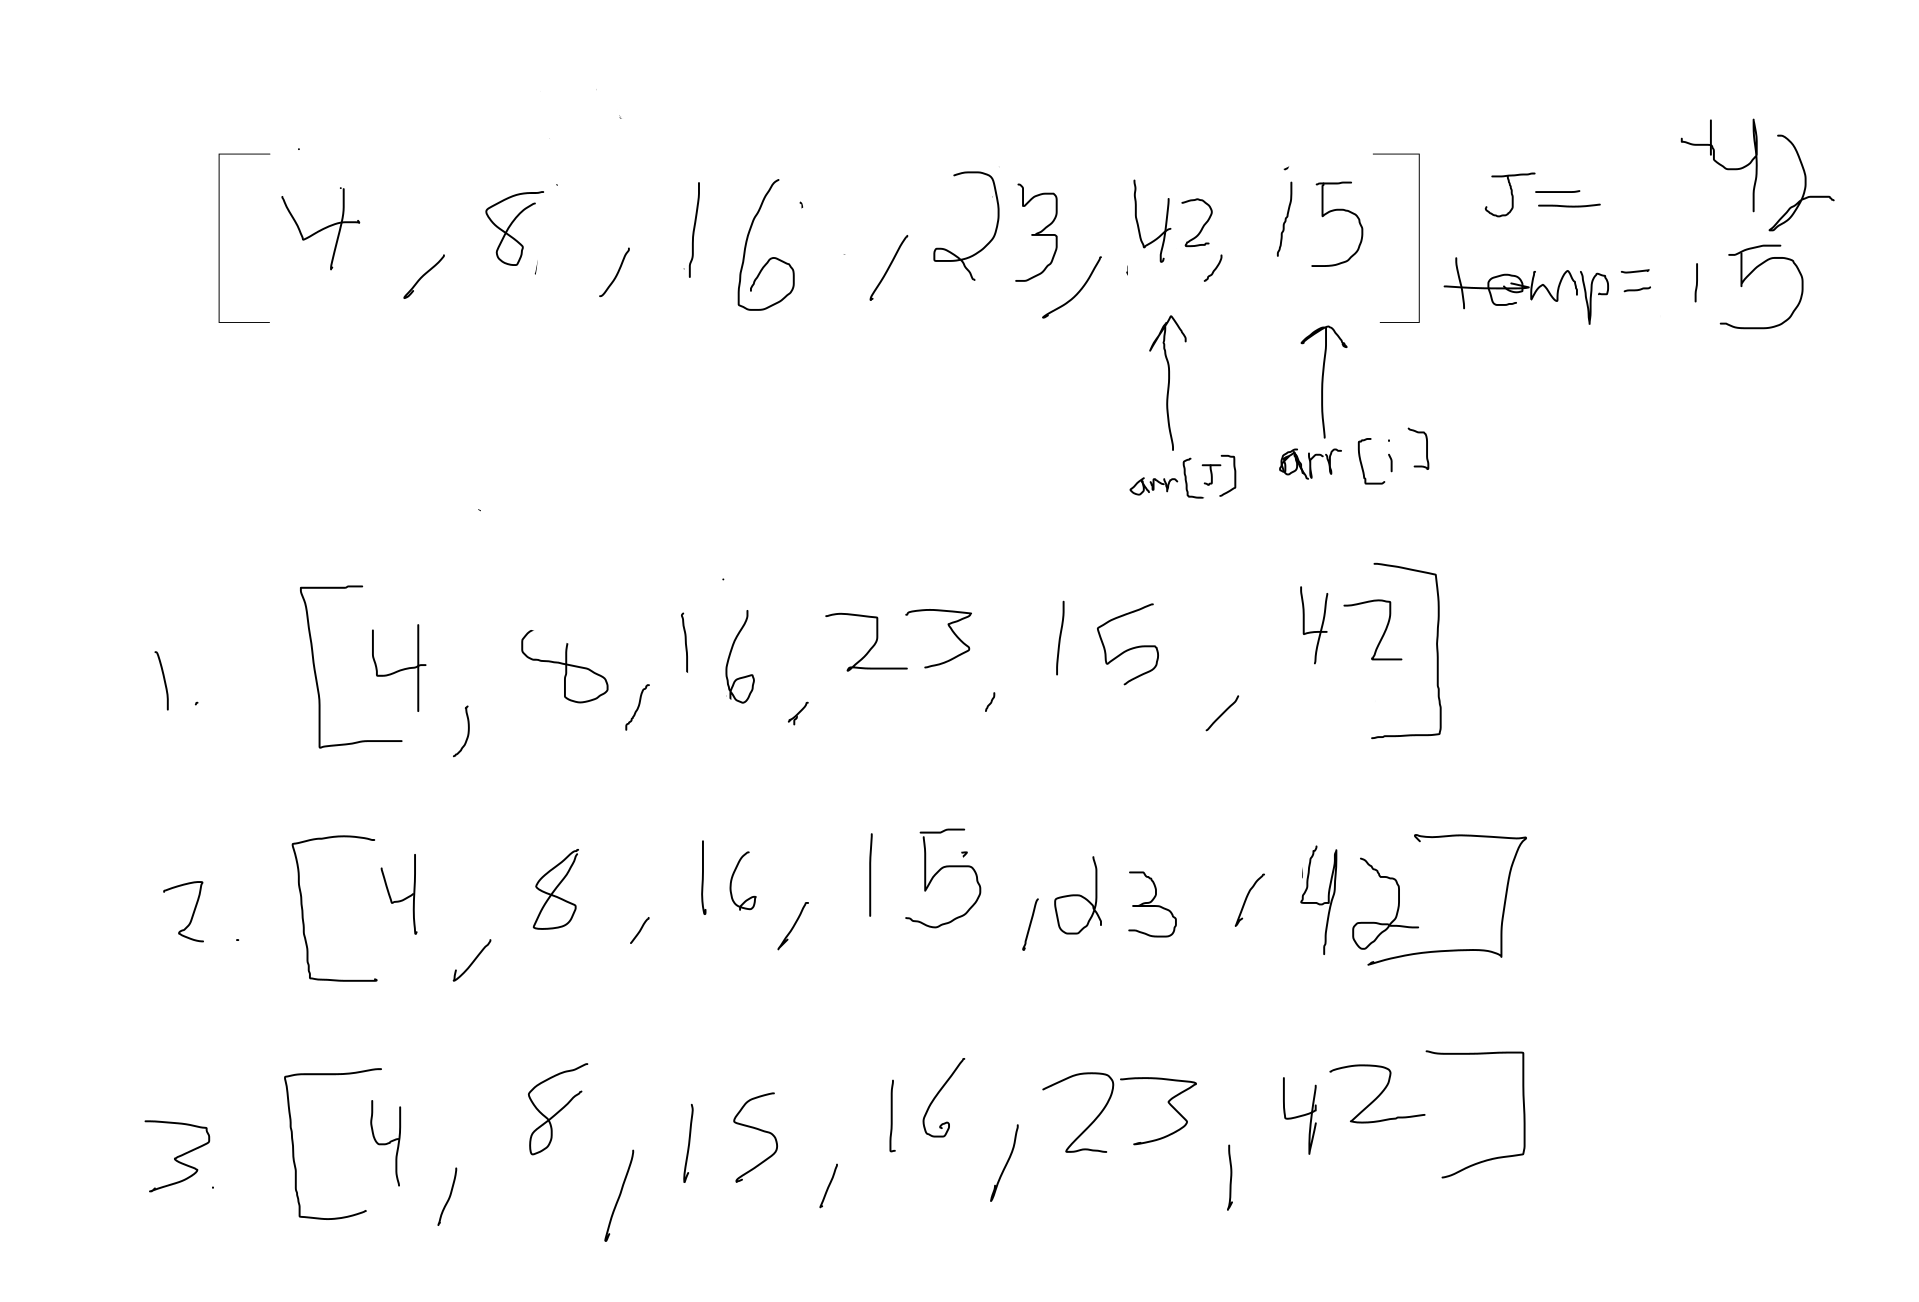 [4, 8, 16, 23, 42, 15] J= 42
temp= 15
arr[J] arr[i]
1. [4, 8, 16, 23, 15, 42]
2. [4, 8, 16, 15, 23, 42]
3. [4, 8, 15, 16, 23, 42]